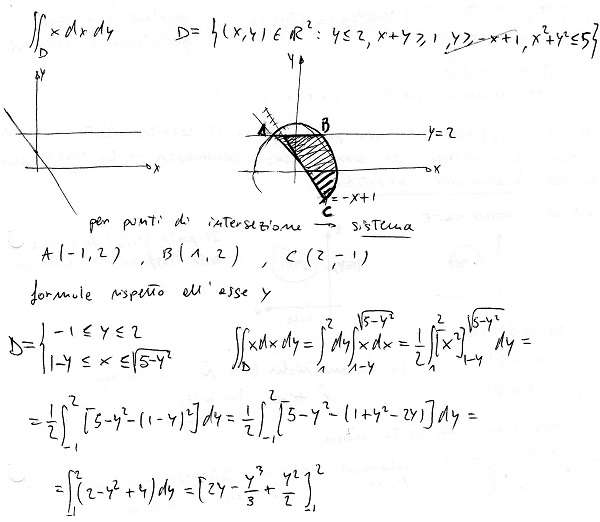 ∬_D x dx dy    D = {(x,y) ∈ ℝ² : y ≤ 2, x+y ≥ 1, y ≥ -x+1, x²+y² ≤ 5}
y
x
y
A B
y=2
x
=-x+1
C
per punti di intersezione → sistema
A(-1,2) , B(1,2) , C(2,-1)
formule rispetto all'asse y
D = { -1 ≤ y ≤ 2
1-y ≤ x ≤ √(5-y²)
∬_D x dx dy = ∫_1^2 dy ∫_{1-y}^{√(5-y²)} x dx = 1/2 ∫_1^2 [x²]_{1-y}^{√(5-y²)} dy =
= 1/2 ∫_{-1}^2 [5-y²-(1-y)²] dy = 1/2 ∫_{-1}^2 [5-y²-(1+y²-2y)] dy =
= ∫_{-1}^2 (2-y²+y) dy = [2y - y³/3 + y²/2]_{-1}^2